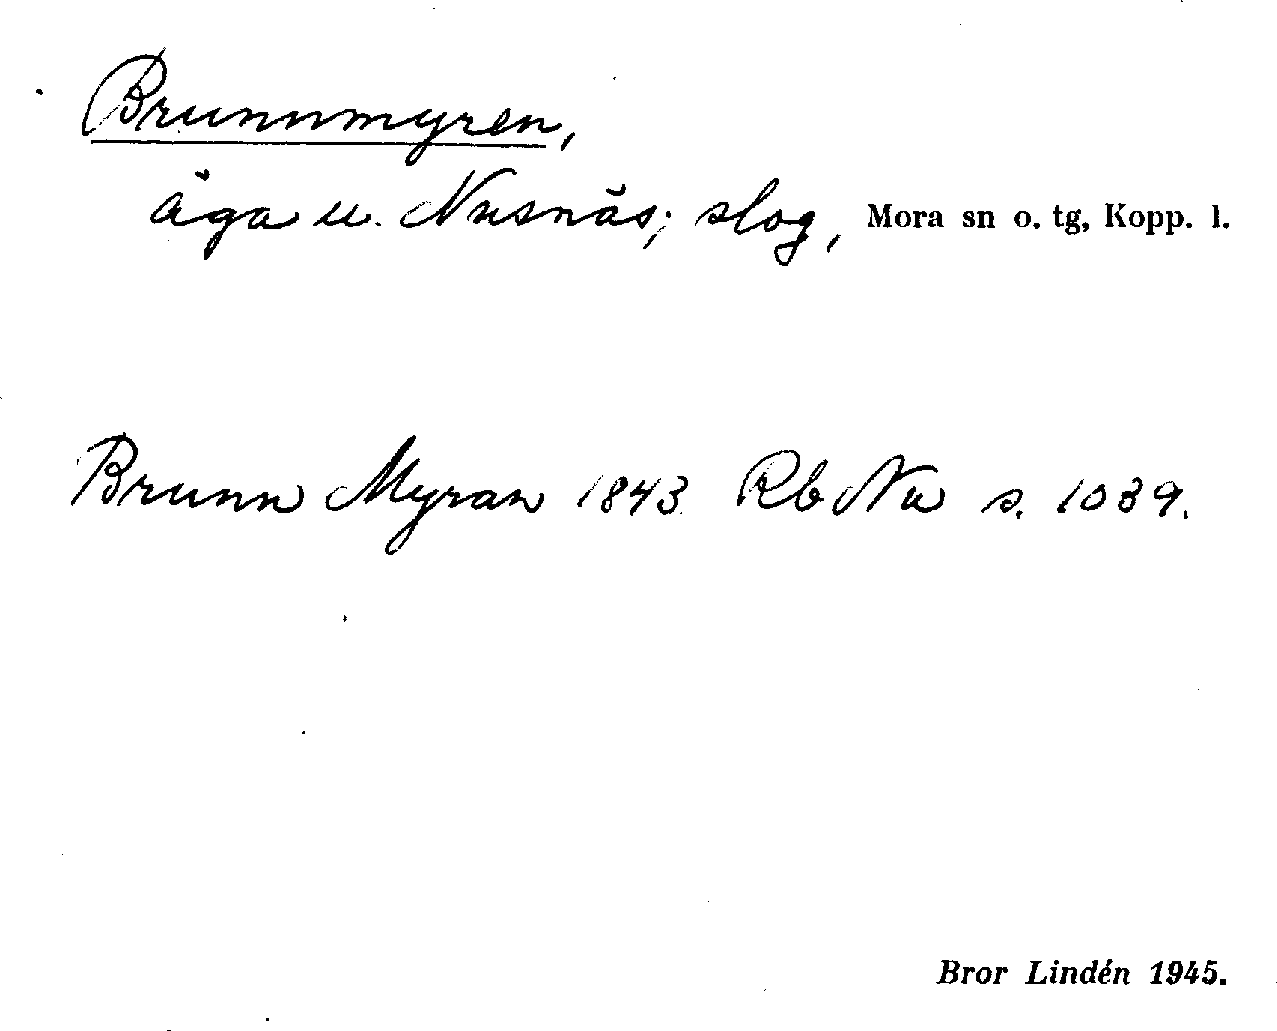 Brunnmyren,
äga u. Nusnäs; slog, Mora sn o. tg, Kopp. l.
Brunn Myran 1843 Rb Nu s. 1039.
Bror Lindén 1945.